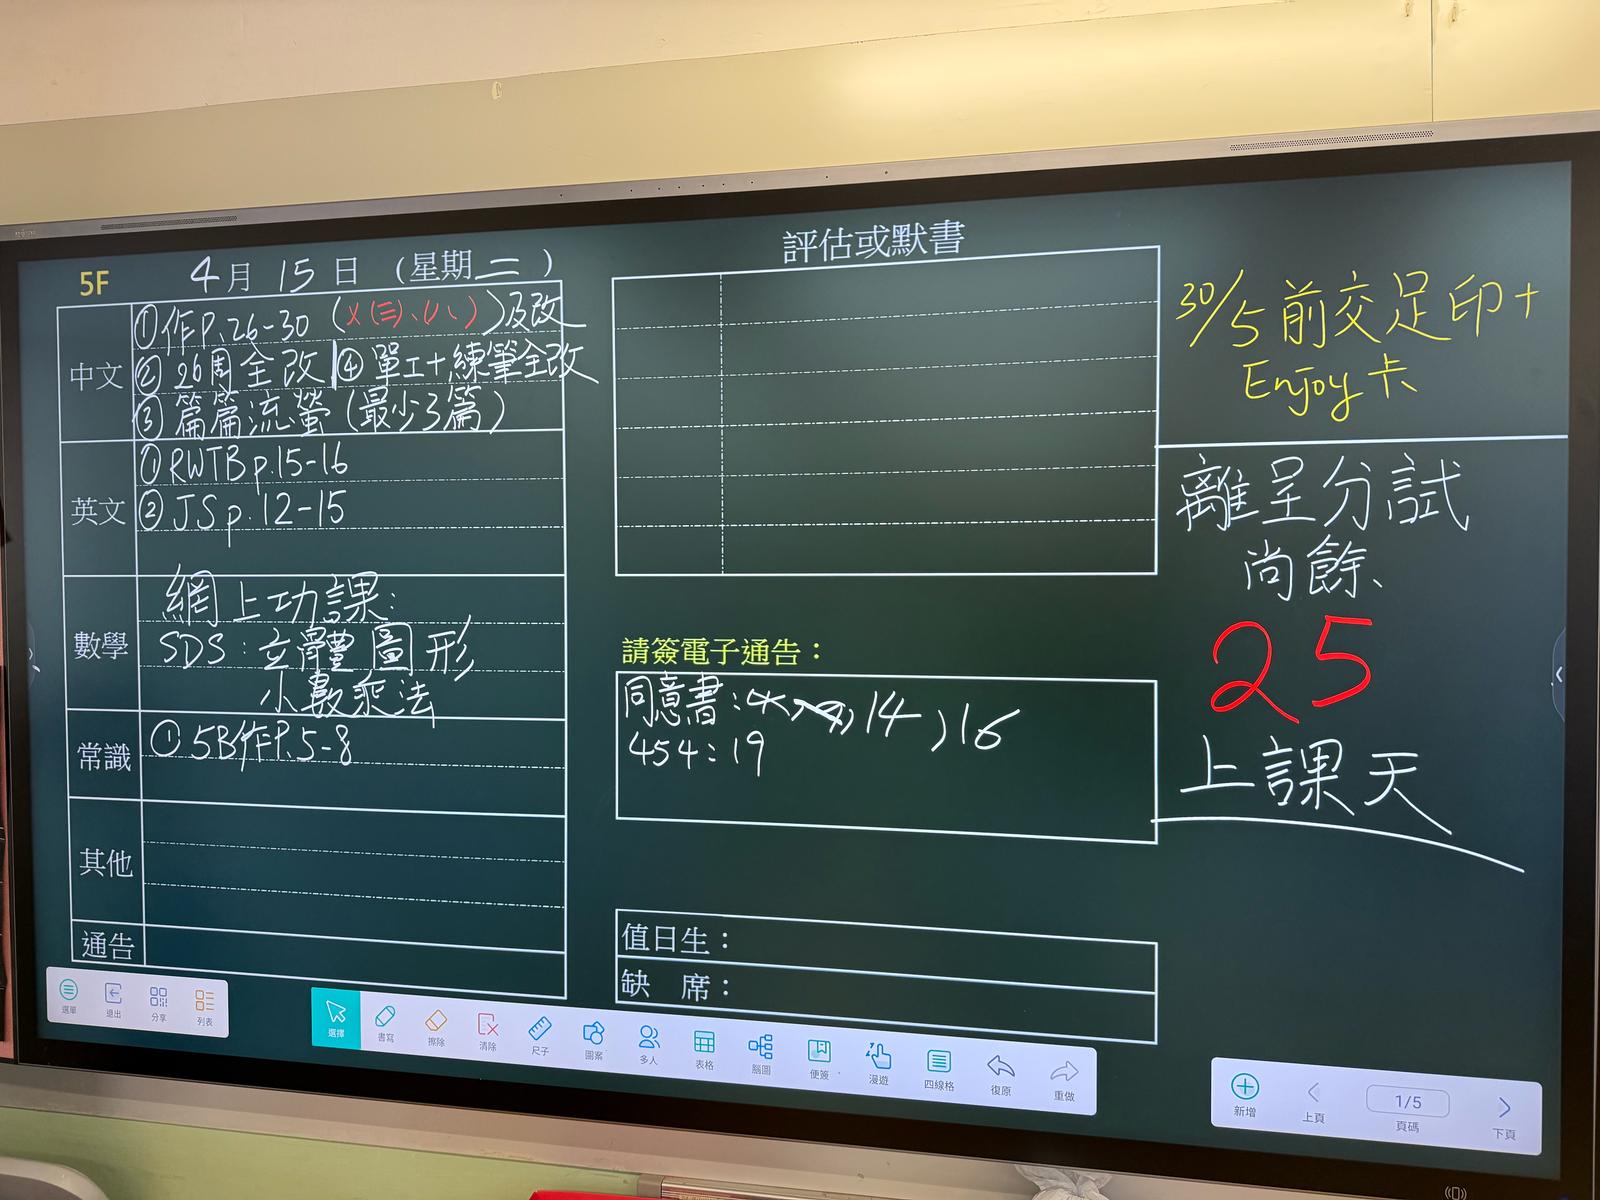 5F 4月15日 (星期二)
中文
①作P.26-30 (X(三)、(八))及改
②26周全改 ④單工+練筆全改
③篇篇流螢(最少3篇)
英文
①RWTB p.15-16
②JS p.12-15
數學
網上功課:
SDS:立體圖形
小數乘法
常識
①5B作P.5-8
其他
通告
評估或默書
請簽電子通告：
同意書: 14, 16
454:19
值日生：
缺 席：
30/5前交足印+
Enjoy卡
離呈分試
尚餘、
25
上課天
選單 退出 分享 列表
選擇 書寫 擦除 清除 尺子 圖案 多人 表格 腦圖 便簽 漫遊 四線格 復原 重做
新增 上頁 1/5 頁碼 下頁